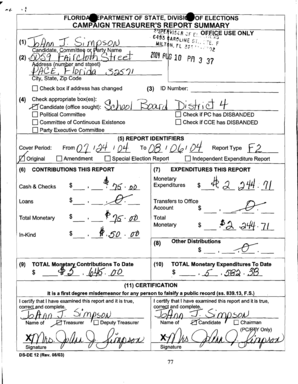 FLORIDA DEPARTMENT OF STATE, DIVISION OF ELECTIONS
CAMPAIGN TREASURER'S REPORT SUMMARY
OFFICE USE ONLY
(1) JoAnn J Simpson
Candidate, Committee or Party Name
(2) 6059 Faircloth Street
Address (number and street)
PACE, Florida 32571
City, State, Zip Code
2024 AUG 10 PM 3:37
Check box if address has changed (3) ID Number:
(4) Check appropriate box(es):
Candidate (office sought): School Board District 4
Political Committee Check if PC has DISBANDED
Committee of Continuous Existence Check if CCE has DISBANDED
Party Executive Committee
(5) REPORT IDENTIFIERS
Cover Period: From 07/24/04 To 08/06/04 Report Type F2
Original Amendment Special Election Report Independent Expenditure Report
(6) CONTRIBUTIONS THIS REPORT
Cash & Checks $ 75.00
Loans $ 0
Total Monetary $ 75.00
In-Kind $ 50.00
(7) EXPENDITURES THIS REPORT
Monetary
Expenditures $ 2,244.71
Transfers to Office
Account $ 0
Total
Monetary $ 2,244.71
(8) Other Distributions
$ 0
(9) TOTAL Monetary Contributions To Date
$ 5,645.00
(10) TOTAL Monetary Expenditures To Date
$ 5,582.38
(11) CERTIFICATION
It is a first degree misdemeanor for any person to falsify a public record (ss. 839.13, F.S.)
I certify that I have examined this report and it is true,
correct and complete.
JoAnn J Simpson
Name of Treasurer Deputy Treasurer
X Mrs. John J Simpson
Signature
I certify that I have examined this report and it is true,
correct and complete.
JoAnn J Simpson
Name of Candidate Chairman
(PC/PTY Only)
X Mrs John J Simpson
Signature
DS-DE 12 (Rev. 08/03)
77